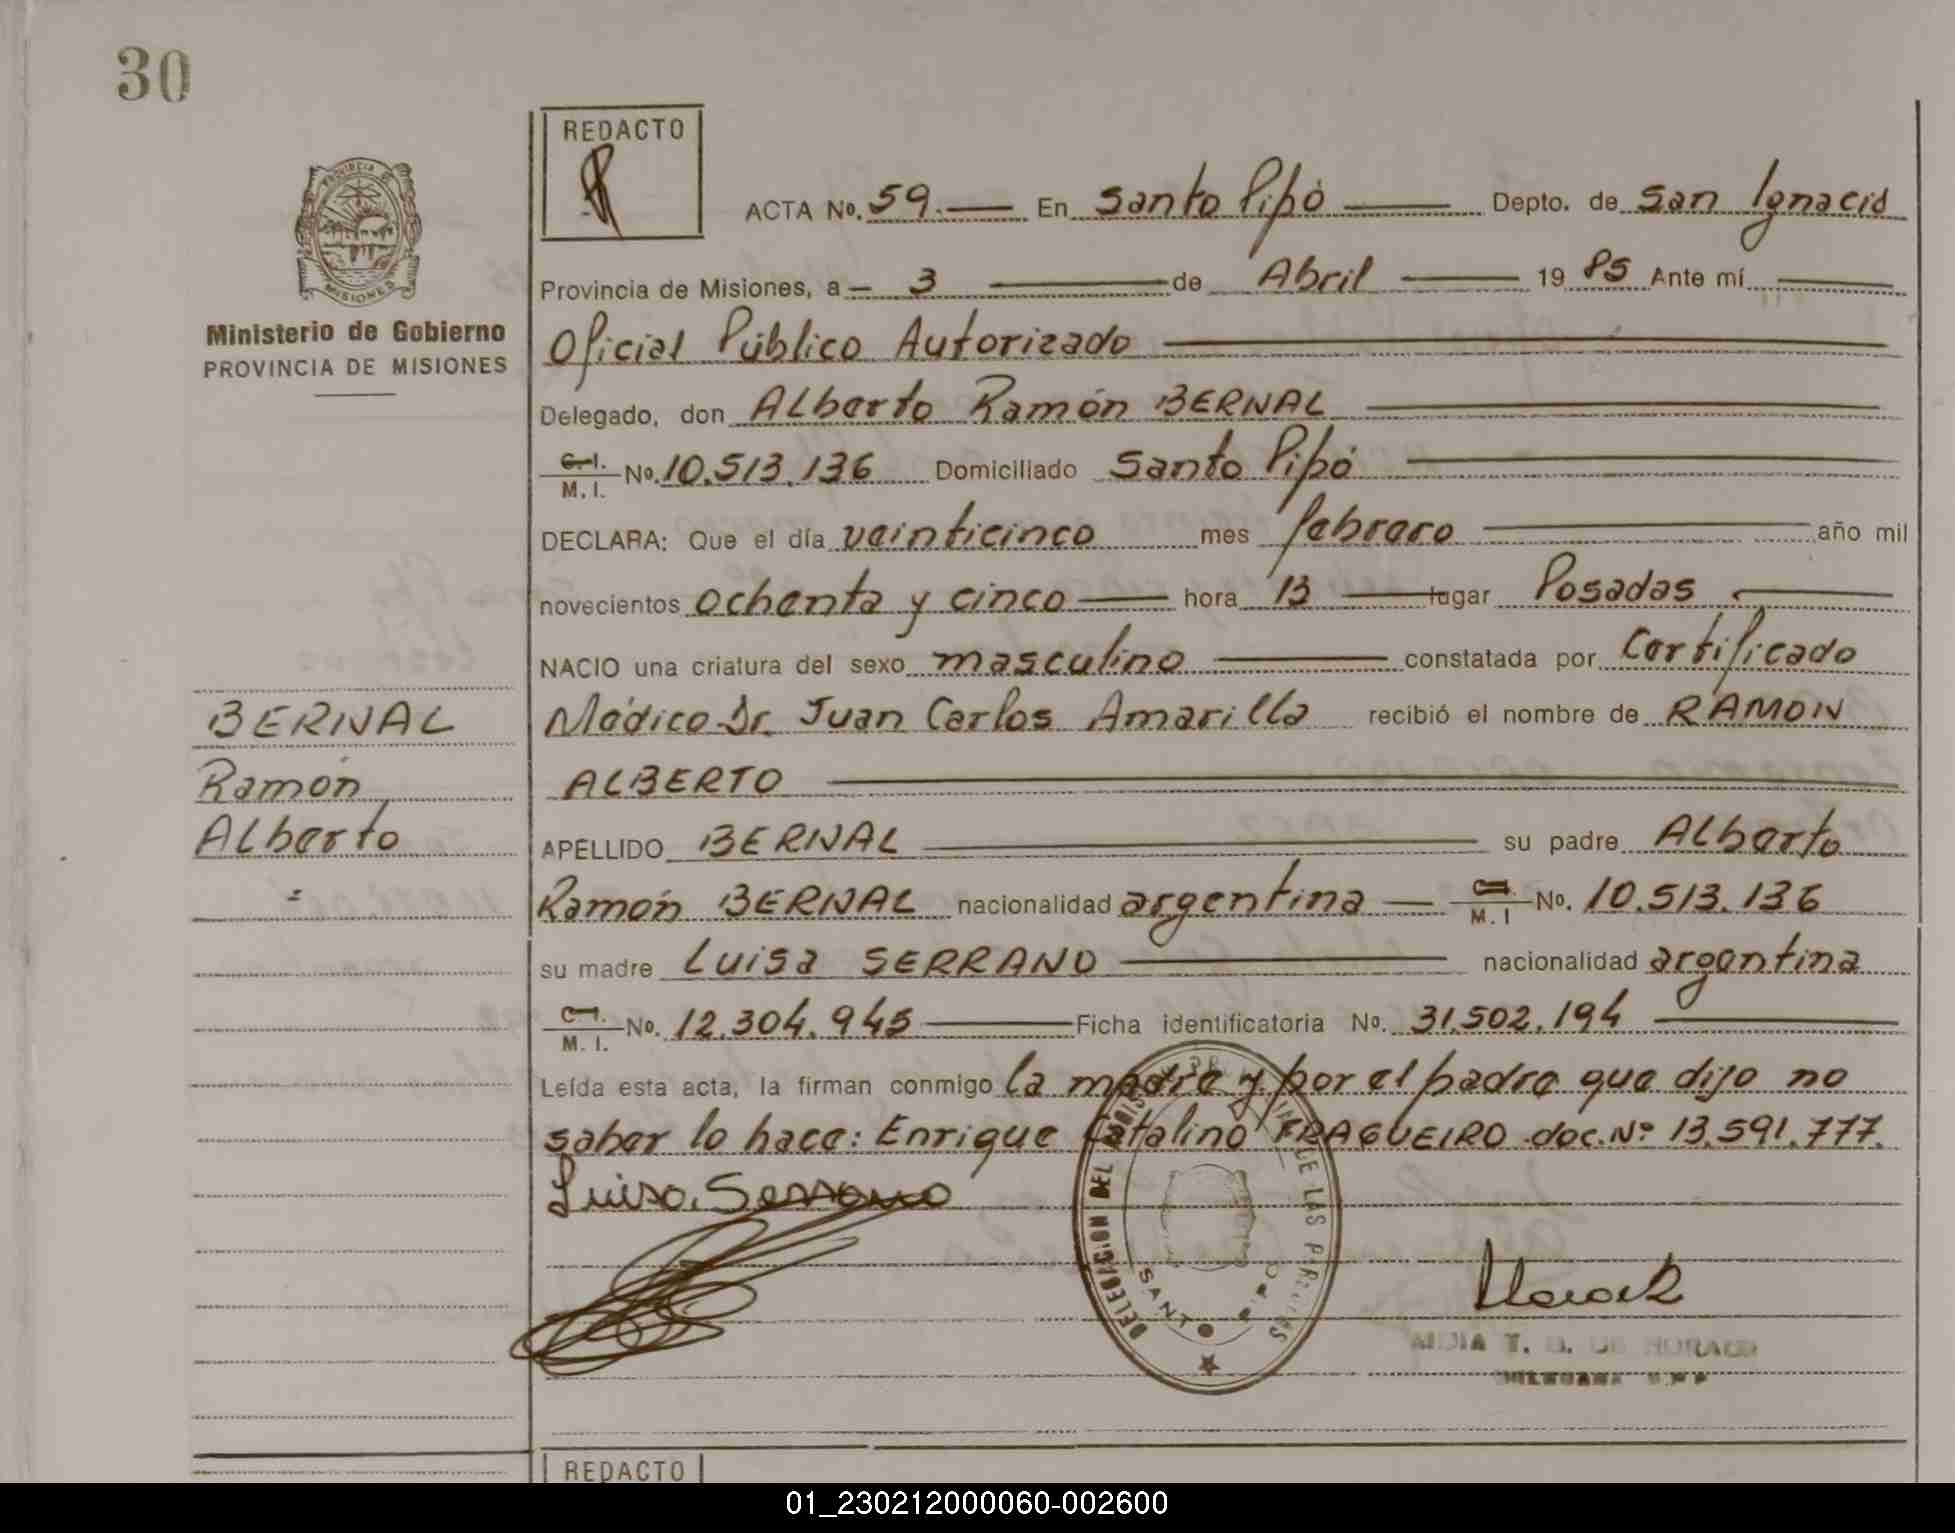 30
REDACTO
PROVINCIA DE
MISIONES
Ministerio de Gobierno
PROVINCIA DE MISIONES
ACTA No. 59.— En Santo Pipó — Depto. de San Ignacio
Provincia de Misiones, a — 3 — de Abril — 1985 Ante mí —
Oficial Público Autorizado —
Delegado, don Alberto Ramón BERNAL —
C.I. / M.I. No. 10.513.136 Domiciliado Santo Pipó —
DECLARA: Que el día veinticinco mes febrero — año mil
novecientos ochenta y cinco — hora 13 — lugar Posadas —
NACIO una criatura del sexo masculino — constatada por Certificado
Médico Dr. Juan Carlos Amarilla recibió el nombre de RAMON
ALBERTO —
APELLIDO BERNAL — su padre Alberto
Ramón BERNAL nacionalidad argentina — C.I. / M.I No. 10.513.136
su madre Luisa SERRANO — nacionalidad argentina
C.I. / M.I. No. 12.304.945 — Ficha identificatoria No. 31.502.194 —
Leída esta acta, la firman conmigo la madre y por el padre que dijo no
saber lo hace: Enrique Catalino FRAGUEIRO doc. Nº 13.591.777.
Luisa Serrano
BERNAL
Ramón
Alberto
DELEGACION DEL REGISTRO DE LAS PERSONAS
SANTO PIPO
T. B. DE
REDACTO
01_230212000060-002600